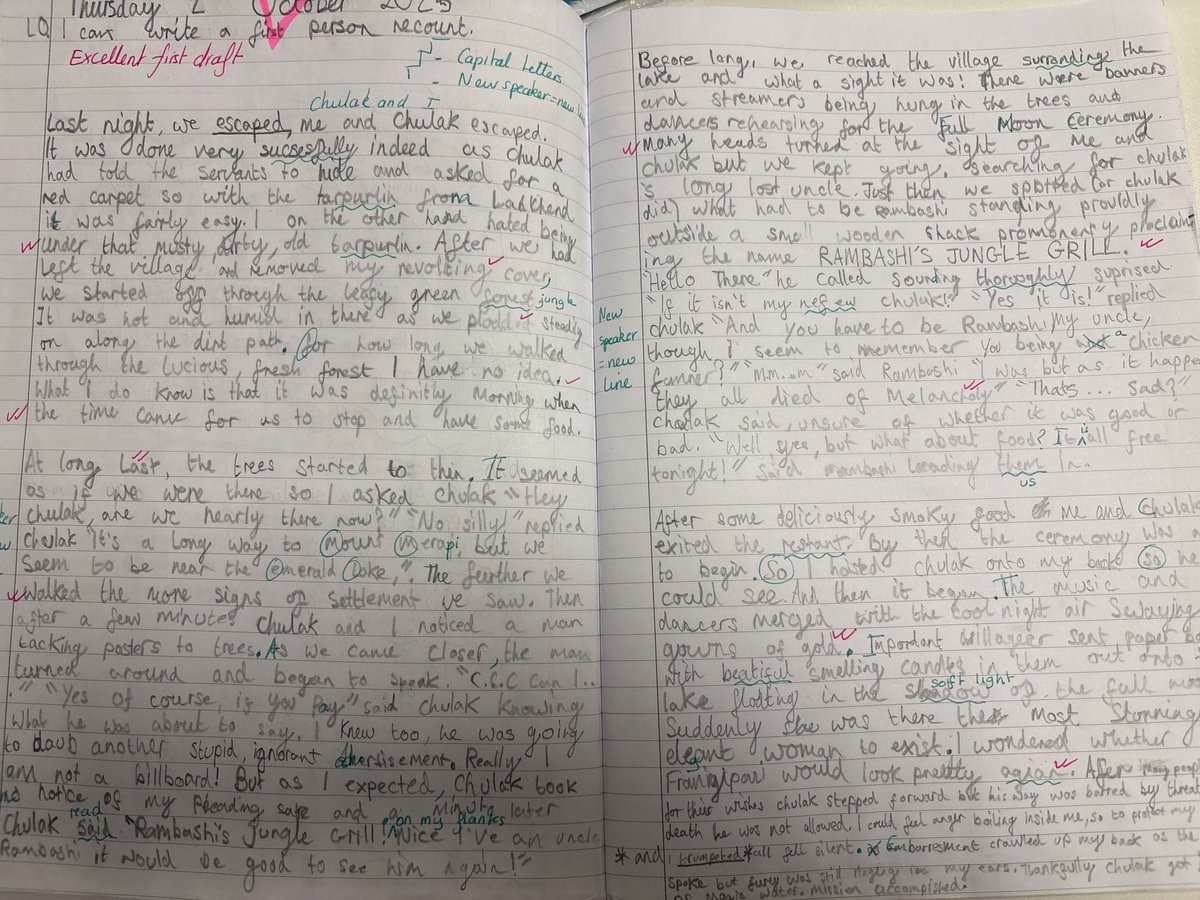 Thursday 2 October 2025
LO I can write a first person recount.
Excellent first draft
- Capital Letters
- New speaker = new line
Chulak and I
Last night, we escaped, me and Chulak escaped.
It was done very succesfully indeed as chulak
had told the servants to hide and asked for a
red carpet so with the tarpurlin from
it was fairly easy. I on the other hand hated being
under that musty, dirty, old tarpurlin. After we had
left the village and removed my revolting cover,
we started off through the leafy green forest jungle
It was hot and humid in there as we plodded steadily
on along the dirt path. For how long we walked
through the lucious, fresh forest I have no idea.
What I do know is that it was definitly morning when
the time came for us to stop and have some food.
At long last, the trees started to thin. It seemed
as if we were there so I asked chulak "Hey
chulak, are we nearly there now?" "No silly" replied
chulak "It's a long way to Mount Merapi, but we
seem to be near the Emerald Lake,". The further we
walked the more signs of settlement we saw. Then
after a few minutes Chulak and I noticed a man
tacking posters to trees. As we came closer, the man
turned around and began to speak. "C.C.C Can I..
." "Yes of course, if you pay" said chulak knowing
what he was about to say. I knew too, he was going
to daub another stupid, ignorant advertisement. Really I
am not a billboard! But as I expected, Chulak took
no notice of my pleading safe and a minute later
on my flanks
read
Chulak said "Rambashi's Jungle Grill! Nice I've an uncle
Rambashi it would be good to see him again!"
Before long, we reached the village surrondinge the
lake and what a sight it was! There were banners
and streamers being hung in the trees and
dancers rehearsing for the Full Moon Ceremony.
Many heads turned at the sight of me and
chulak but we kept going, searching for chulak
's long lost uncle. Just then we spotted (or chulak
did) what had to be Rambashi standing prouldly
outside a small wooden shack promonenty proclaim
ing the name RAMBASHI'S JUNGLE GRILL.
"Hello There" he called sounding thorooghly suprised
"If it isn't my nefew chulak!" "Yes it is!" replied
New speaker = new line
chulak "And you have to be Rambashi, My uncle,
though I seem to remember you being a chicken
farmer?" "M.m...m" said Rambashi "I was but as it happe
they all died of Melancholy" "Thats... sad?"
Chulak said, unsure of whether it was good or
bad. "Well yes, but what about food? It is all free
tonight!" said rambashi leading them in.
us
After some deliciously smoky food me and Chulak
exited the restant. By then the ceremony was a
to begin. So I hoisted chulak onto my back so we
could see. And then it began. The music and
dancers merged with the cool night air Swaying
gowns of gold. Important villager sent paper
with beatiful smelling candles in them out onto
soft light
lake floating in the shadow of the full moo
Suddenly she was there the most stunning
elegant woman to exist. I wondered whether
Frangipani would look pretty again. After many people
for thier wishes chulak stepped forward but his way was barred by threat
death he was not allowed. I could feel anger boiling inside me, so to protect my
* and I trumpeted* all fell silent. Embarresment crawled up my back as the
spoke but fury was still ringing in my ears. Thankfully Chulak got
of Magic water. mission accomplished.